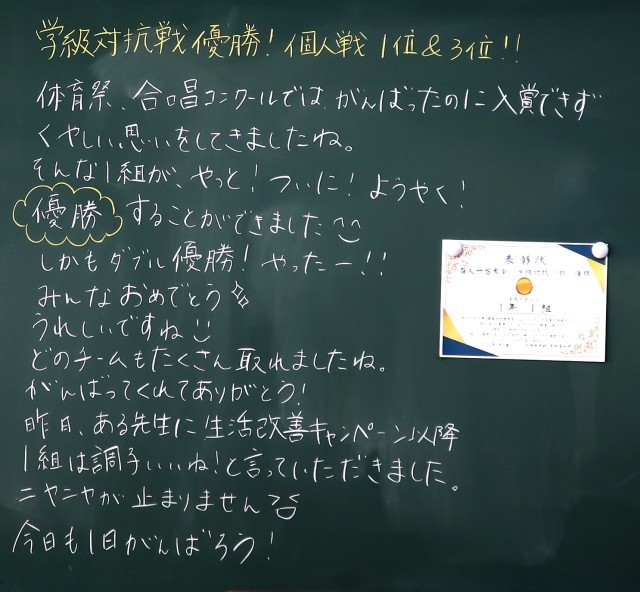 学級対抗戦優勝！個人戦1位&3位！！
体育祭、合唱コンクールでは がんばったのに入賞できず
くやしい思いをしてきましたね。
そんな1組が、やっと！ついに！ようやく！
優勝 することができました
しかもダブル優勝！やったー！！
みんなおめでとう
うれしいですね
どのチームもたくさん取れましたね。
がんばってくれてありがとう！
昨日、ある先生に生活改善キャンペーン以降
1組は調子いいね！と言っていただきました。
ニヤニヤが止まりません
今日も1日がんばろう！
表彰状
1年 1組